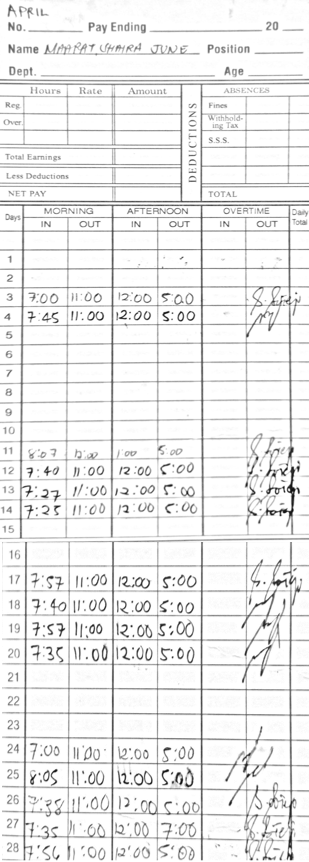 APRIL
No. Pay Ending 20
Name MAAPAT, SHAIRA JUNE Position
Dept. Age
Hours Rate Amount DEDUCTIONS ABSENCES
Reg. Fines
Over. Withhold-
ing Tax
S.S.S.
Total Earnings
Less Deductions
NET PAY TOTAL
Days MORNING AFTERNOON OVERTIME Daily
IN OUT IN OUT IN OUT Total
1
2
3 7:00 11:00 12:00 5:00
4 7:45 11:00 12:00 5:00
5
6
7
8
9
10
11 8:07 12:00 1:00 5:00
12 7:40 11:00 12:00 5:00
13 7:27 11:00 12:00 5:00
14 7:25 11:00 12:00 5:00
15
16
17 7:57 11:00 12:00 5:00
18 7:40 11:00 12:00 5:00
19 7:57 11:00 12:00 5:00
20 7:35 11:00 12:00 5:00
21
22
23
24 7:00 11:00 12:00 5:00
25 8:05 11:00 12:00 5:00
26 7:38 11:00 12:00 5:00
27 7:35 11:00 12:00 7:00
28 7:56 11:00 12:00 5:00